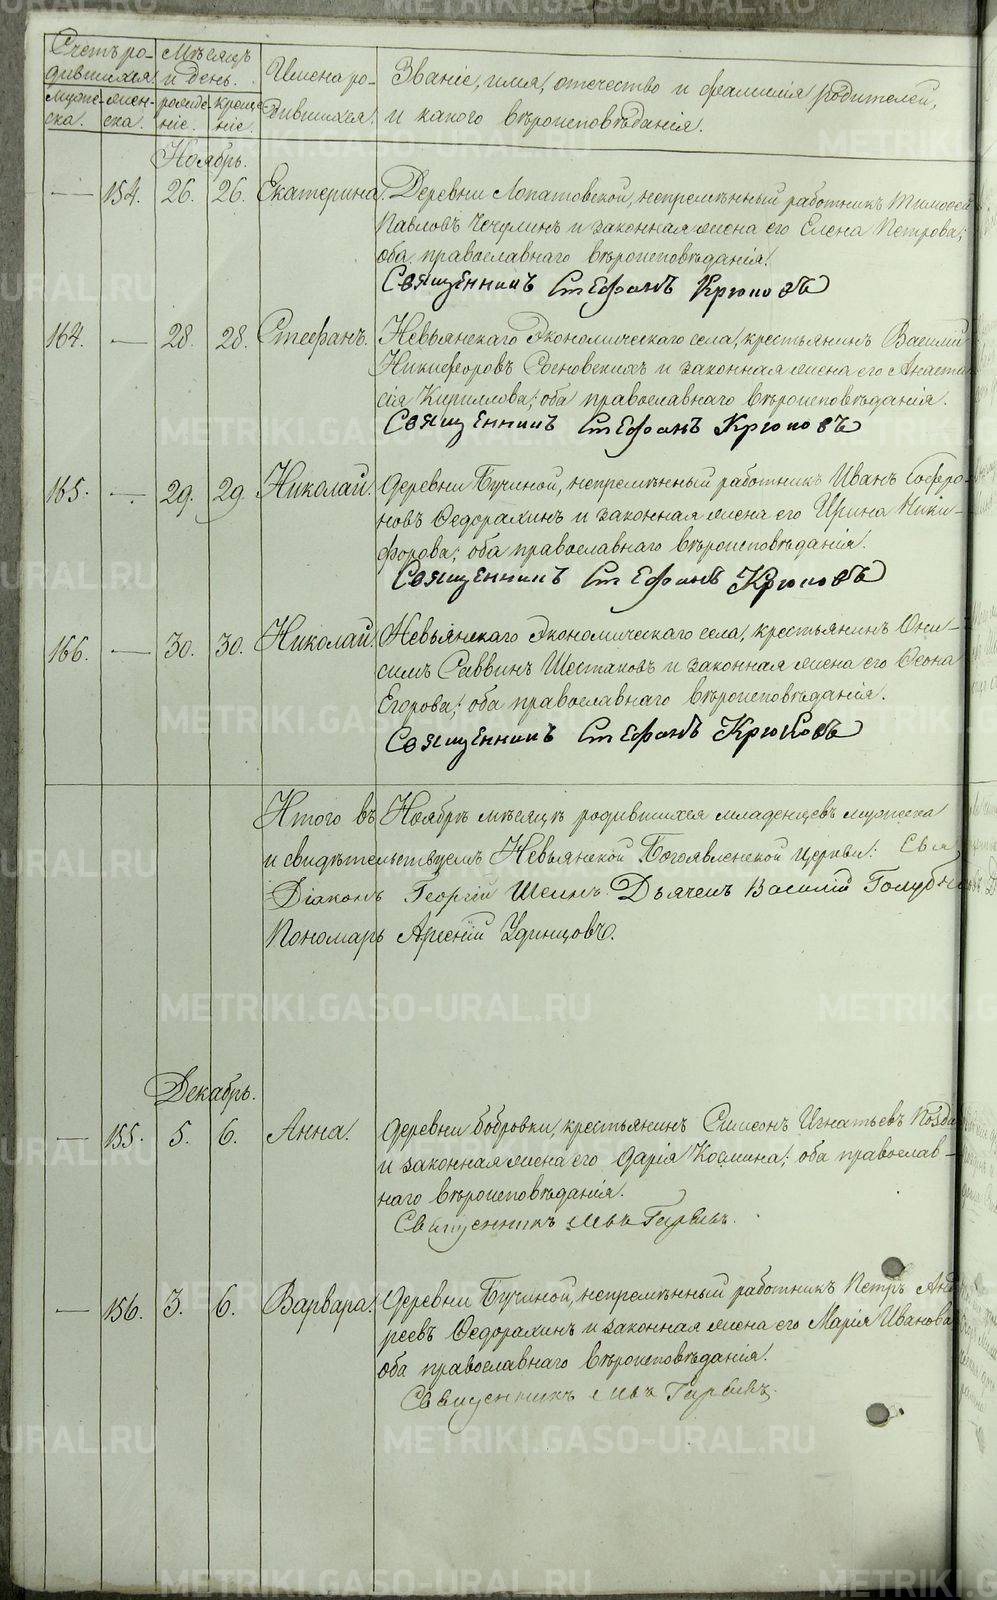 Счетъ ро-
дившихся.
Мѣсяцъ
и день.
Имена ро-
дившихся.
Званіе, имя, отечество и фамилія родителей,
и какого вѣроисповѣданія.
муже-
ска.
жен-
ска.
рожде-
ніе.
креще-
ніе.
Ноябрь.
— 154. 26. 26. Екатерина. Деревни Лопатовской, непремѣнный работникъ Тимоѳей
Павловъ Чечулинъ и законная жена его Елена Петрова;
оба православнаго вѣроисповѣданія.
Священникъ Стефанъ Крюковъ
164. — 28. 28. Стефанъ. Невьянскаго Экономическаго села, крестьянинъ Василий
Никифоровъ Сосновскихъ и законная жена его Анаста-
сія Кириллова; оба православнаго вѣроисповѣданія.
Священникъ Стефанъ Крюковъ
165. — 29. 29. Николай. Деревни Бучиной, непремѣнный работникъ Иванъ Софро-
новъ Ѳедорахинъ и законная жена его Ирина Ники-
форова; оба православнаго вѣроисповѣданія.
Священникъ Стефанъ Крюковъ
166. — 30. 30. Николай. Невьянскаго Экономическаго села, крестьянинъ Они-
симъ Саввинъ Шестаковъ и законная жена его Ѳеона
Егорова; оба православнаго вѣроисповѣданія.
Священникъ Стефанъ Крюковъ
Итого въ Ноябрѣ мѣсяцѣ родившихся младенцевъ мужеска
и свидѣтельствуемъ Невьянской Богоявленской церкви:
Діаконъ Георгій Дьячекъ Василій
Пономарь Арсеній Удинцовъ.
Декабрь.
— 155. 5. 6. Анна. Деревни Бобровки, крестьянинъ Симеонъ Игнатьевъ
и законная жена его Дарія Космина; оба православ-
наго вѣроисповѣданія.
Священникъ
— 156. 3. 6. Варвара. Деревни Бучиной, непремѣнный работникъ Петръ Анд-
реевъ Ѳедорахинъ и законная жена его Марія Иванова
оба православнаго вѣроисповѣданія.
Священникъ
METRIKI.GASO-URAL.RU